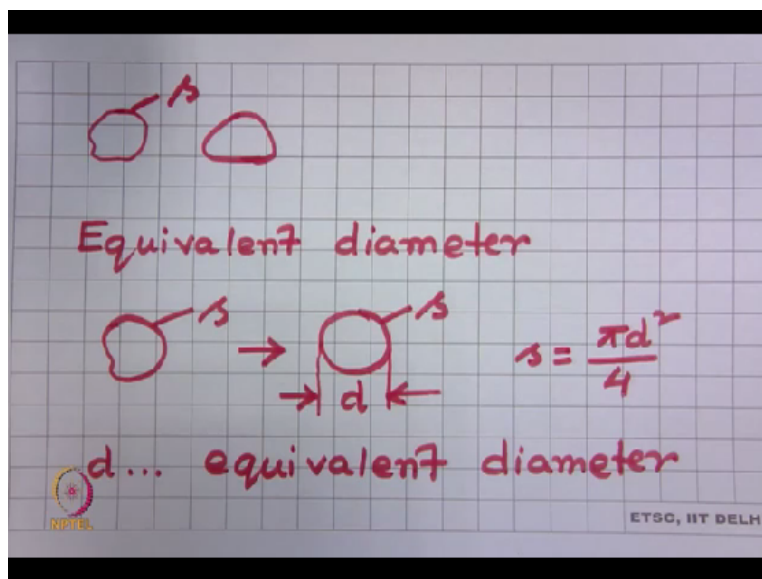 s
Equivalent diameter
s → s s = πd²/4
→ d ←
d... equivalent diameter
NPTEL
ETSC, IIT DELH